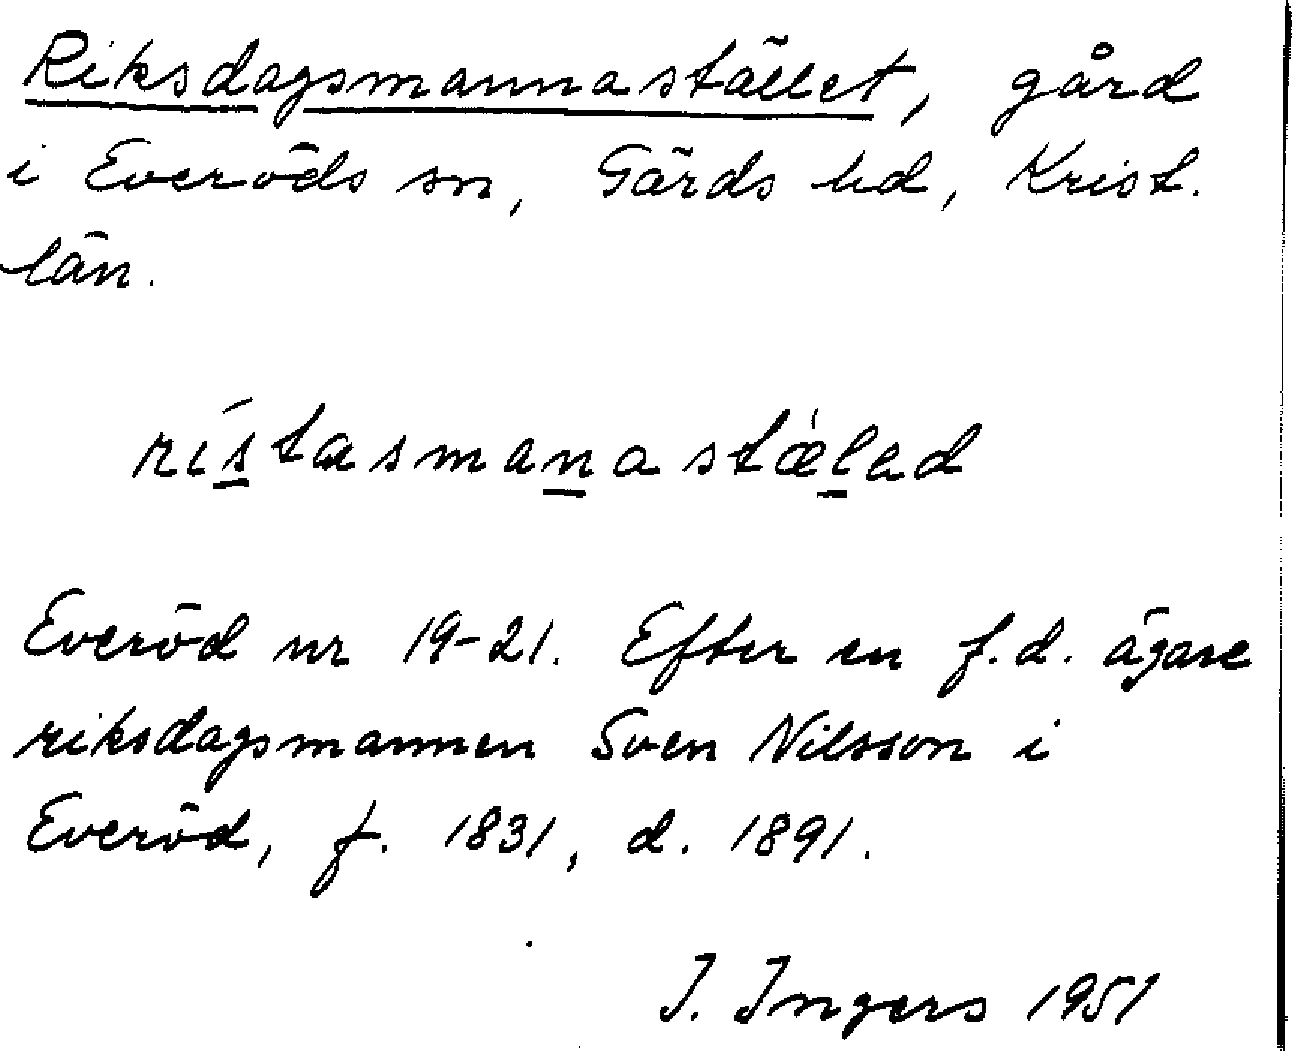 Riksdagsmannastället, gård
i Everöds sn, Gärds hd, Krist.
län.
rístasmanastæ̀lad
Everöd nr 19-21. Efter en f.d. ägare
riksdagsmannen Sven Nilsson i
Everöd, f. 1831, d. 1891.
I. Ingers 1951